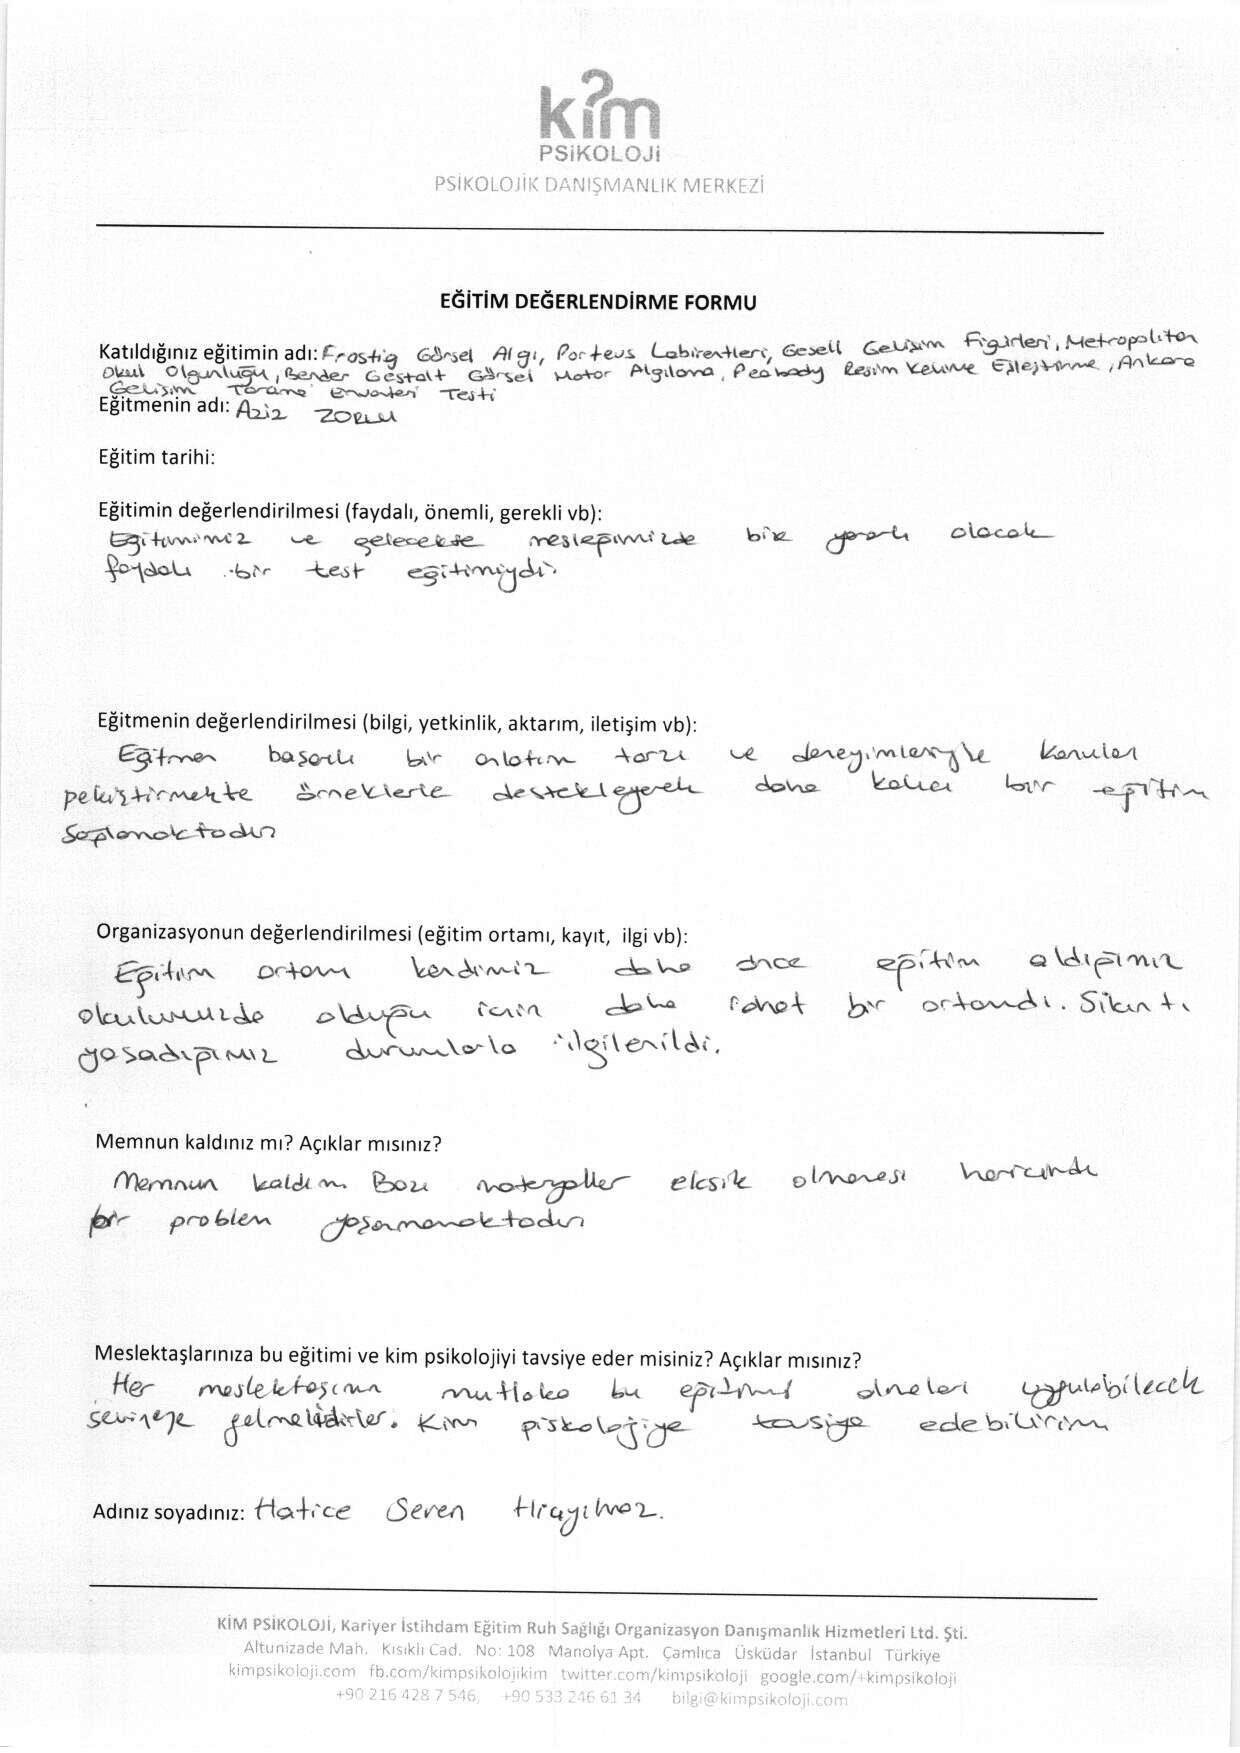 kim
PSİKOLOJİ
PSİKOLOJİK DANIŞMANLIK MERKEZİ
EĞİTİM DEĞERLENDİRME FORMU
Katıldığınız eğitimin adı: Frostig Görsel Algı, Porteus Labirentleri, Gesell Gelişim Figürleri, Metropoliten
Okul Olgunluğu, Bender Gestalt Görsel Motor Algılama, Peabody Resim Kelime Eşleştirme, Ankara
Gelişim Tarama Envanteri Testi
Eğitmenin adı: Aziz
Eğitim tarihi:
Eğitimin değerlendirilmesi (faydalı, önemli, gerekli vb):
Eğitimimiz ve gelecekse mesleğimizde bize yararlı olacak
faydalı bir test eğitimiydi.
Eğitmenin değerlendirilmesi (bilgi, yetkinlik, aktarım, iletişim vb):
Eğitmen başarılı bir anlatım tarzı ve deneyimleriyle konuları
pekiştirmekte örneklerle destekleyerek daha kalıcı bir eğitim
sağlamaktadır
Organizasyonun değerlendirilmesi (eğitim ortamı, kayıt, ilgi vb):
Eğitim ortamı kendimiz daha önce eğitim aldığımız
okulumuzda olduğu için daha rahat bir ortamdı. Sıkıntı
yaşadığımız durumlarla ilgilenildi.
Memnun kaldınız mı? Açıklar mısınız?
Memnun kaldım. Bazı materyaller eksik olmaması haricinde
bir problem yaşanmamaktadır
Meslektaşlarınıza bu eğitimi ve kim psikolojiyi tavsiye eder misiniz? Açıklar mısınız?
Her meslektaşımın mutlaka bu eğitimi almaları uygulabilecek
seviyeye gelmelidirler. Kim piskolojiye tavsiye edebilirim
Adınız soyadınız: Hatice Seren
KİM PSİKOLOJİ, Kariyer İstihdam Eğitim Ruh Sağlığı Organizasyon Danışmanlık Hizmetleri Ltd. Şti.
Altunizade Mah. Kısıklı Cad. No: 108 Manolya Apt. Çamlıca Üsküdar İstanbul Türkiye
kimpsikoloji.com fb.com/kimpsikolojikim twitter.com/kimpsikoloji google.com/+kimpsikoloji
+90 216 428 7 546, +90 533 246 61 34 bilgi@kimpsikoloji.com